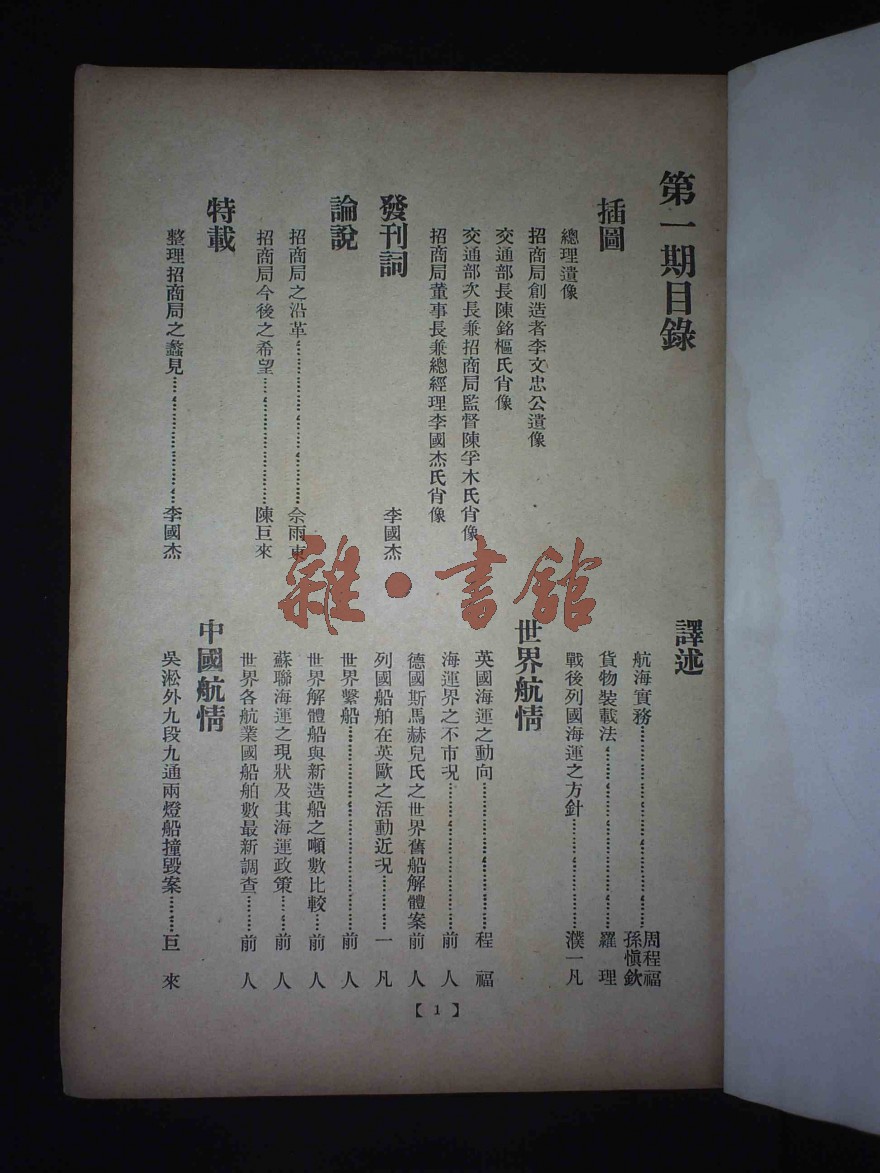 第一期目錄
插圖
總理遺像
招商局創造者李文忠公遺像
交通部長陳銘樞氏肖像
交通部次長兼招商局監督陳孚木氏肖像
招商局董事長兼總經理李國杰氏肖像
發刊詞 李國杰
論說
招商局之沿革……………………佘雨東
招商局今後之希望………………陳巨來
特載
整理招商局之蠡見………………李國杰
譯述
航海實務……………………周程福 孫愼欽
貨物裝載法……………………羅 理
戰後列國海運之方針……………濮一凡
世界航情
英國海運之動向…………………程 福
海運界之不市況…………………前 人
德國斯馬赫兒氏之世界舊船解體案 前 人
列國船舶在英歐之活動近況………一 凡
世界繫船…………………………前 人
世界解體船與新造船之噸數比較…前 人
蘇聯海運之現狀及其海運政策……前 人
世界各航業國船舶數最新調查……前 人
中國航情
吳淞外九段九通兩燈船撞毀案……巨 來
【1】
雜·書館